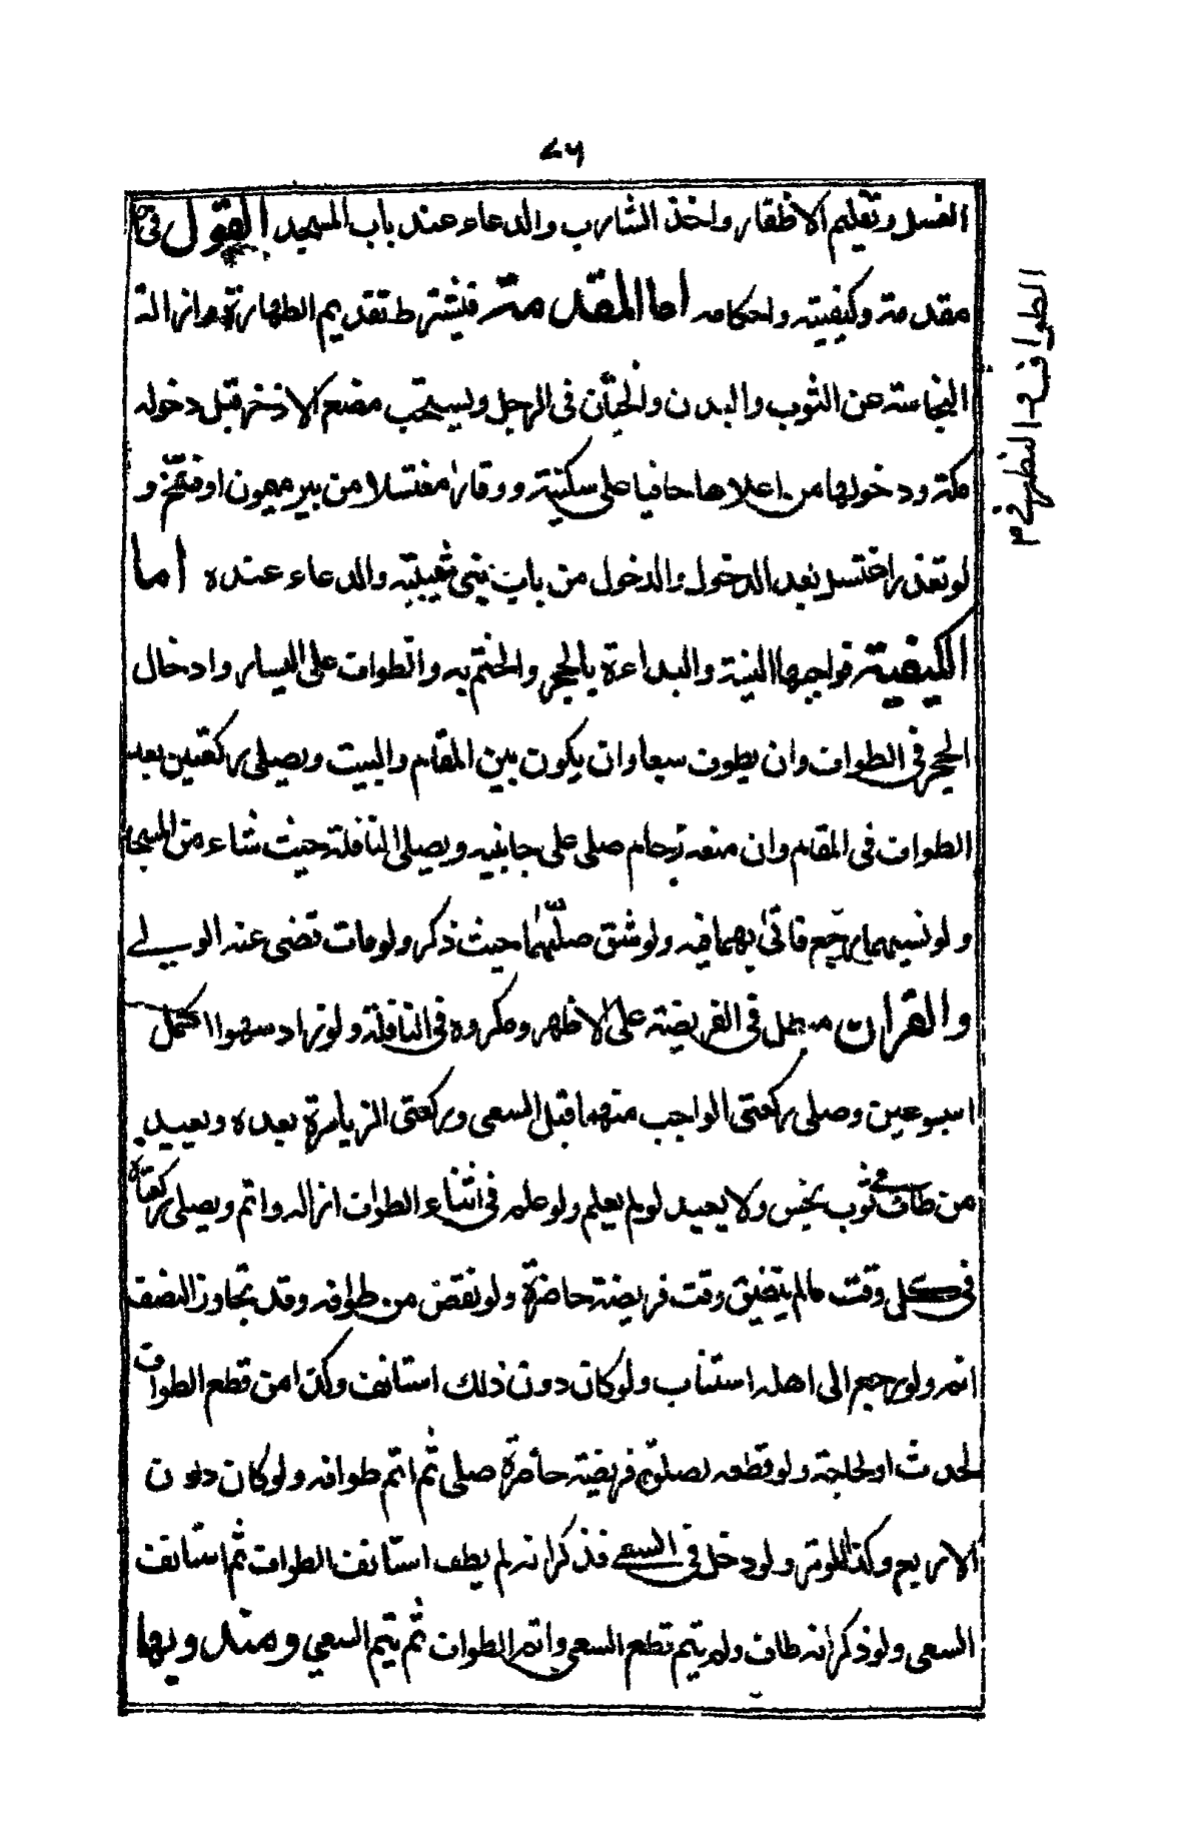 ٧٦
الغسل وتقليم الاظفار واخذ الشارب والدعاء عند باب المسجد القول فى
الطواف والنظر فى م
مقدمته وكيفيته واحكامه اما المقدمة فيشترط تقديم الطهارة وازالة
النجاسة عن الثوب والبدن والختان فى الرجل ويستحب مضغ الاذخر قبل دخوله
مكة ودخولها من اعلاها حافيا على سكينة ووقار مغتسلا من بير ميمون او فخ و
لو تعذر اغتسل بعد الدخول والدخول من باب بنى شيبة والدعاء عنده اما
الكيفية فواجبها النية والبداءة بالحجر والختم به والطواف على اليسار وادخال
الحجر فى الطواف وان يطوف سبعا وان يكون بين المقام والبيت ويصلى ركعتين بعد
الطواف فى المقام وان منعه زحام صلى على جانبيه ويصلى النافلة حيث شاء من المسجد
ولو نسيهما رجع فاتى بهما فيه ولو شق صليهما حيث ذكر ولو مات قضى عنه الولى
والقران مبطل فى الفريضة على الاظهر ومكروه فى النافلة ولو زاد سهوا اكمل
اسبوعين وصلى ركعتى الواجب منهما قبل السعى وركعتى الزيارة بعده ويعيد
من طاف فى ثوب نجس ولا يعيد لو لم يعلم ولو علم فى اثناء الطواف ازاله واتم ويصلى ركعتاه
فى كل وقت مالم يتضيق وقت فريضة حاضرة ولو نقص من طوافه وقد تجاوز النصف
اتم ولو رجع الى اهله استناب ولو كان دون ذلك استانف وكذا من قطع الطواف
لحدث او لحاجة ولو قطعه لصلوة فريضة حاضرة صلى ثم اتم طوافه ولو كان دون
الاربع وكذا للوتر ولو دخل فى السعى فذكر انه لم يطف استانف الطواف ثم استانف
السعى ولو ذكر انه طاف ولم يتم قطع السعى واتم الطواف ثم يتم السعي ومندوبها